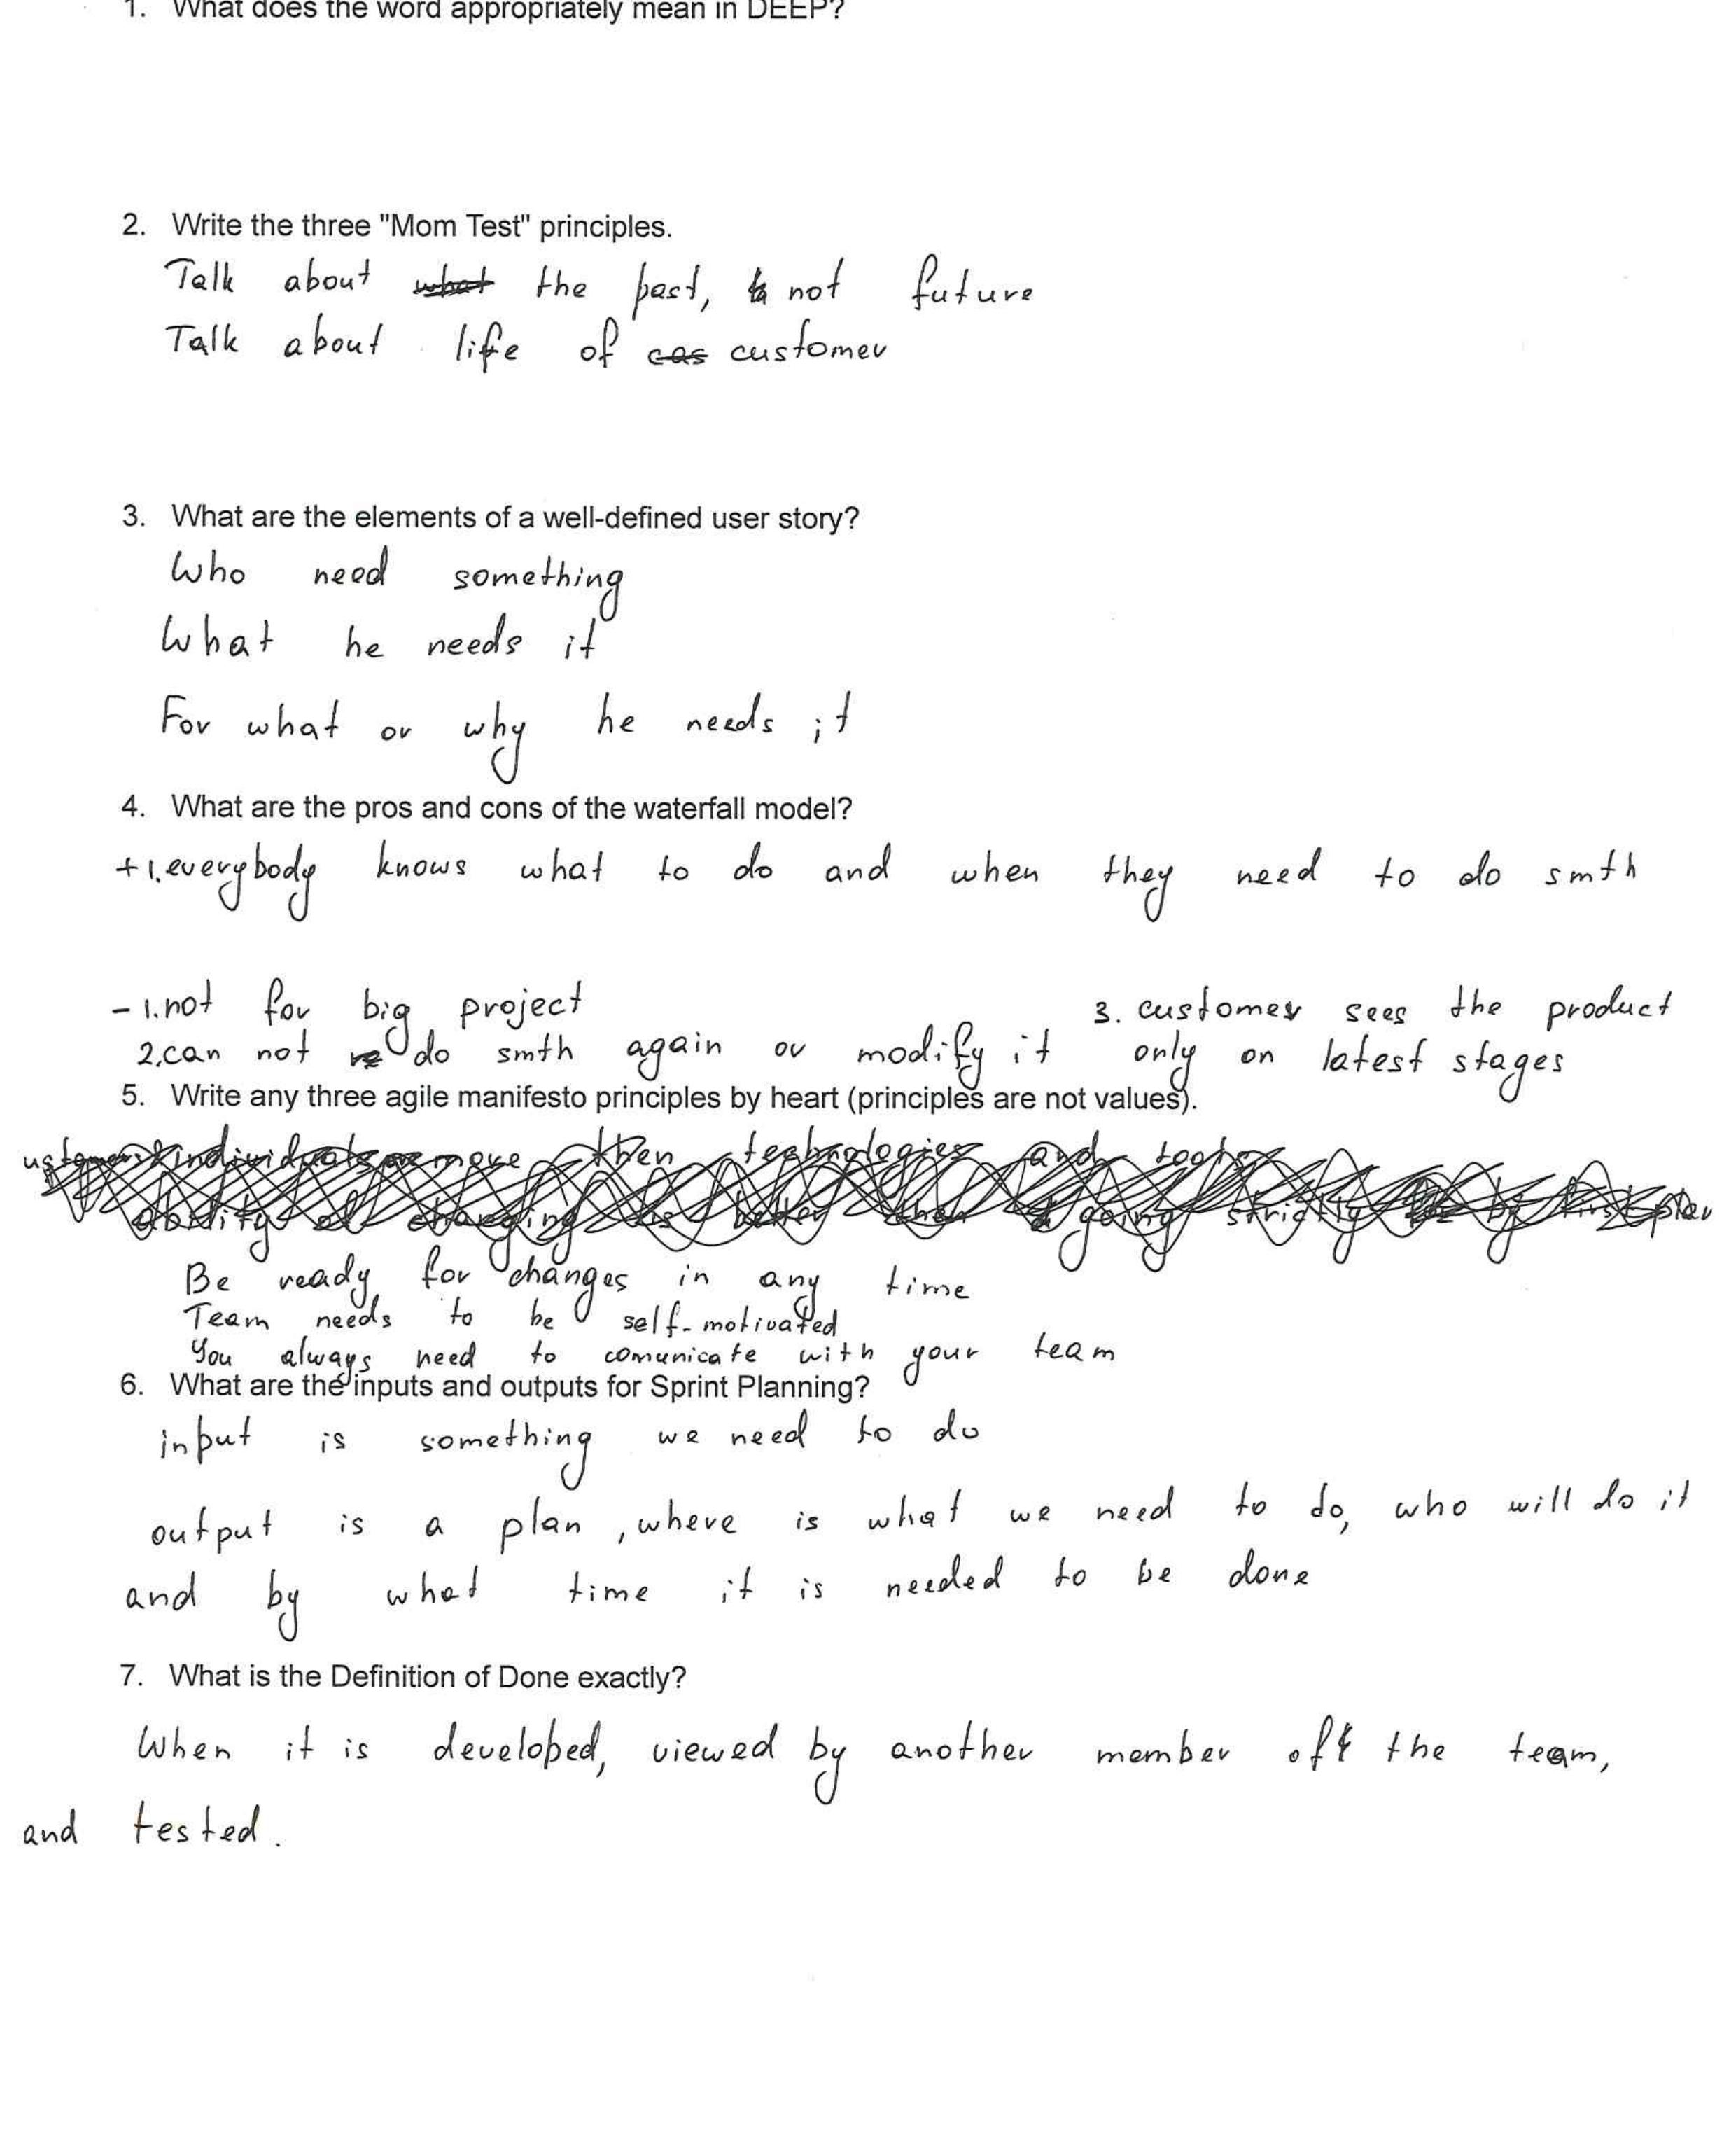 1. What does the word appropriately mean in DEEP?
2. Write the three "Mom Test" principles.
Talk about what the past, not future
Talk about life of cas customer
3. What are the elements of a well-defined user story?
Who need something
What he needs it
For what or why he needs it
4. What are the pros and cons of the waterfall model?
+ 1. everybody knows what to do and when they need to do smth
- 1. not for big project
2. can not re do smth again or modify it
3. customer sees the product
only on latest stages
5. Write any three agile manifesto principles by heart (principles are not values).
individuals more then technologies and tools
ability of changing is better then going strictly by plan
Be ready for changes in any time
Team needs to be self-motivated
You always need to comunicate with your team
6. What are the inputs and outputs for Sprint Planning?
input is something we need to do
output is a plan, where is what we need to do, who will do it
and by what time it is needed to be done
7. What is the Definition of Done exactly?
When it is developed, viewed by another member of the team,
and tested.